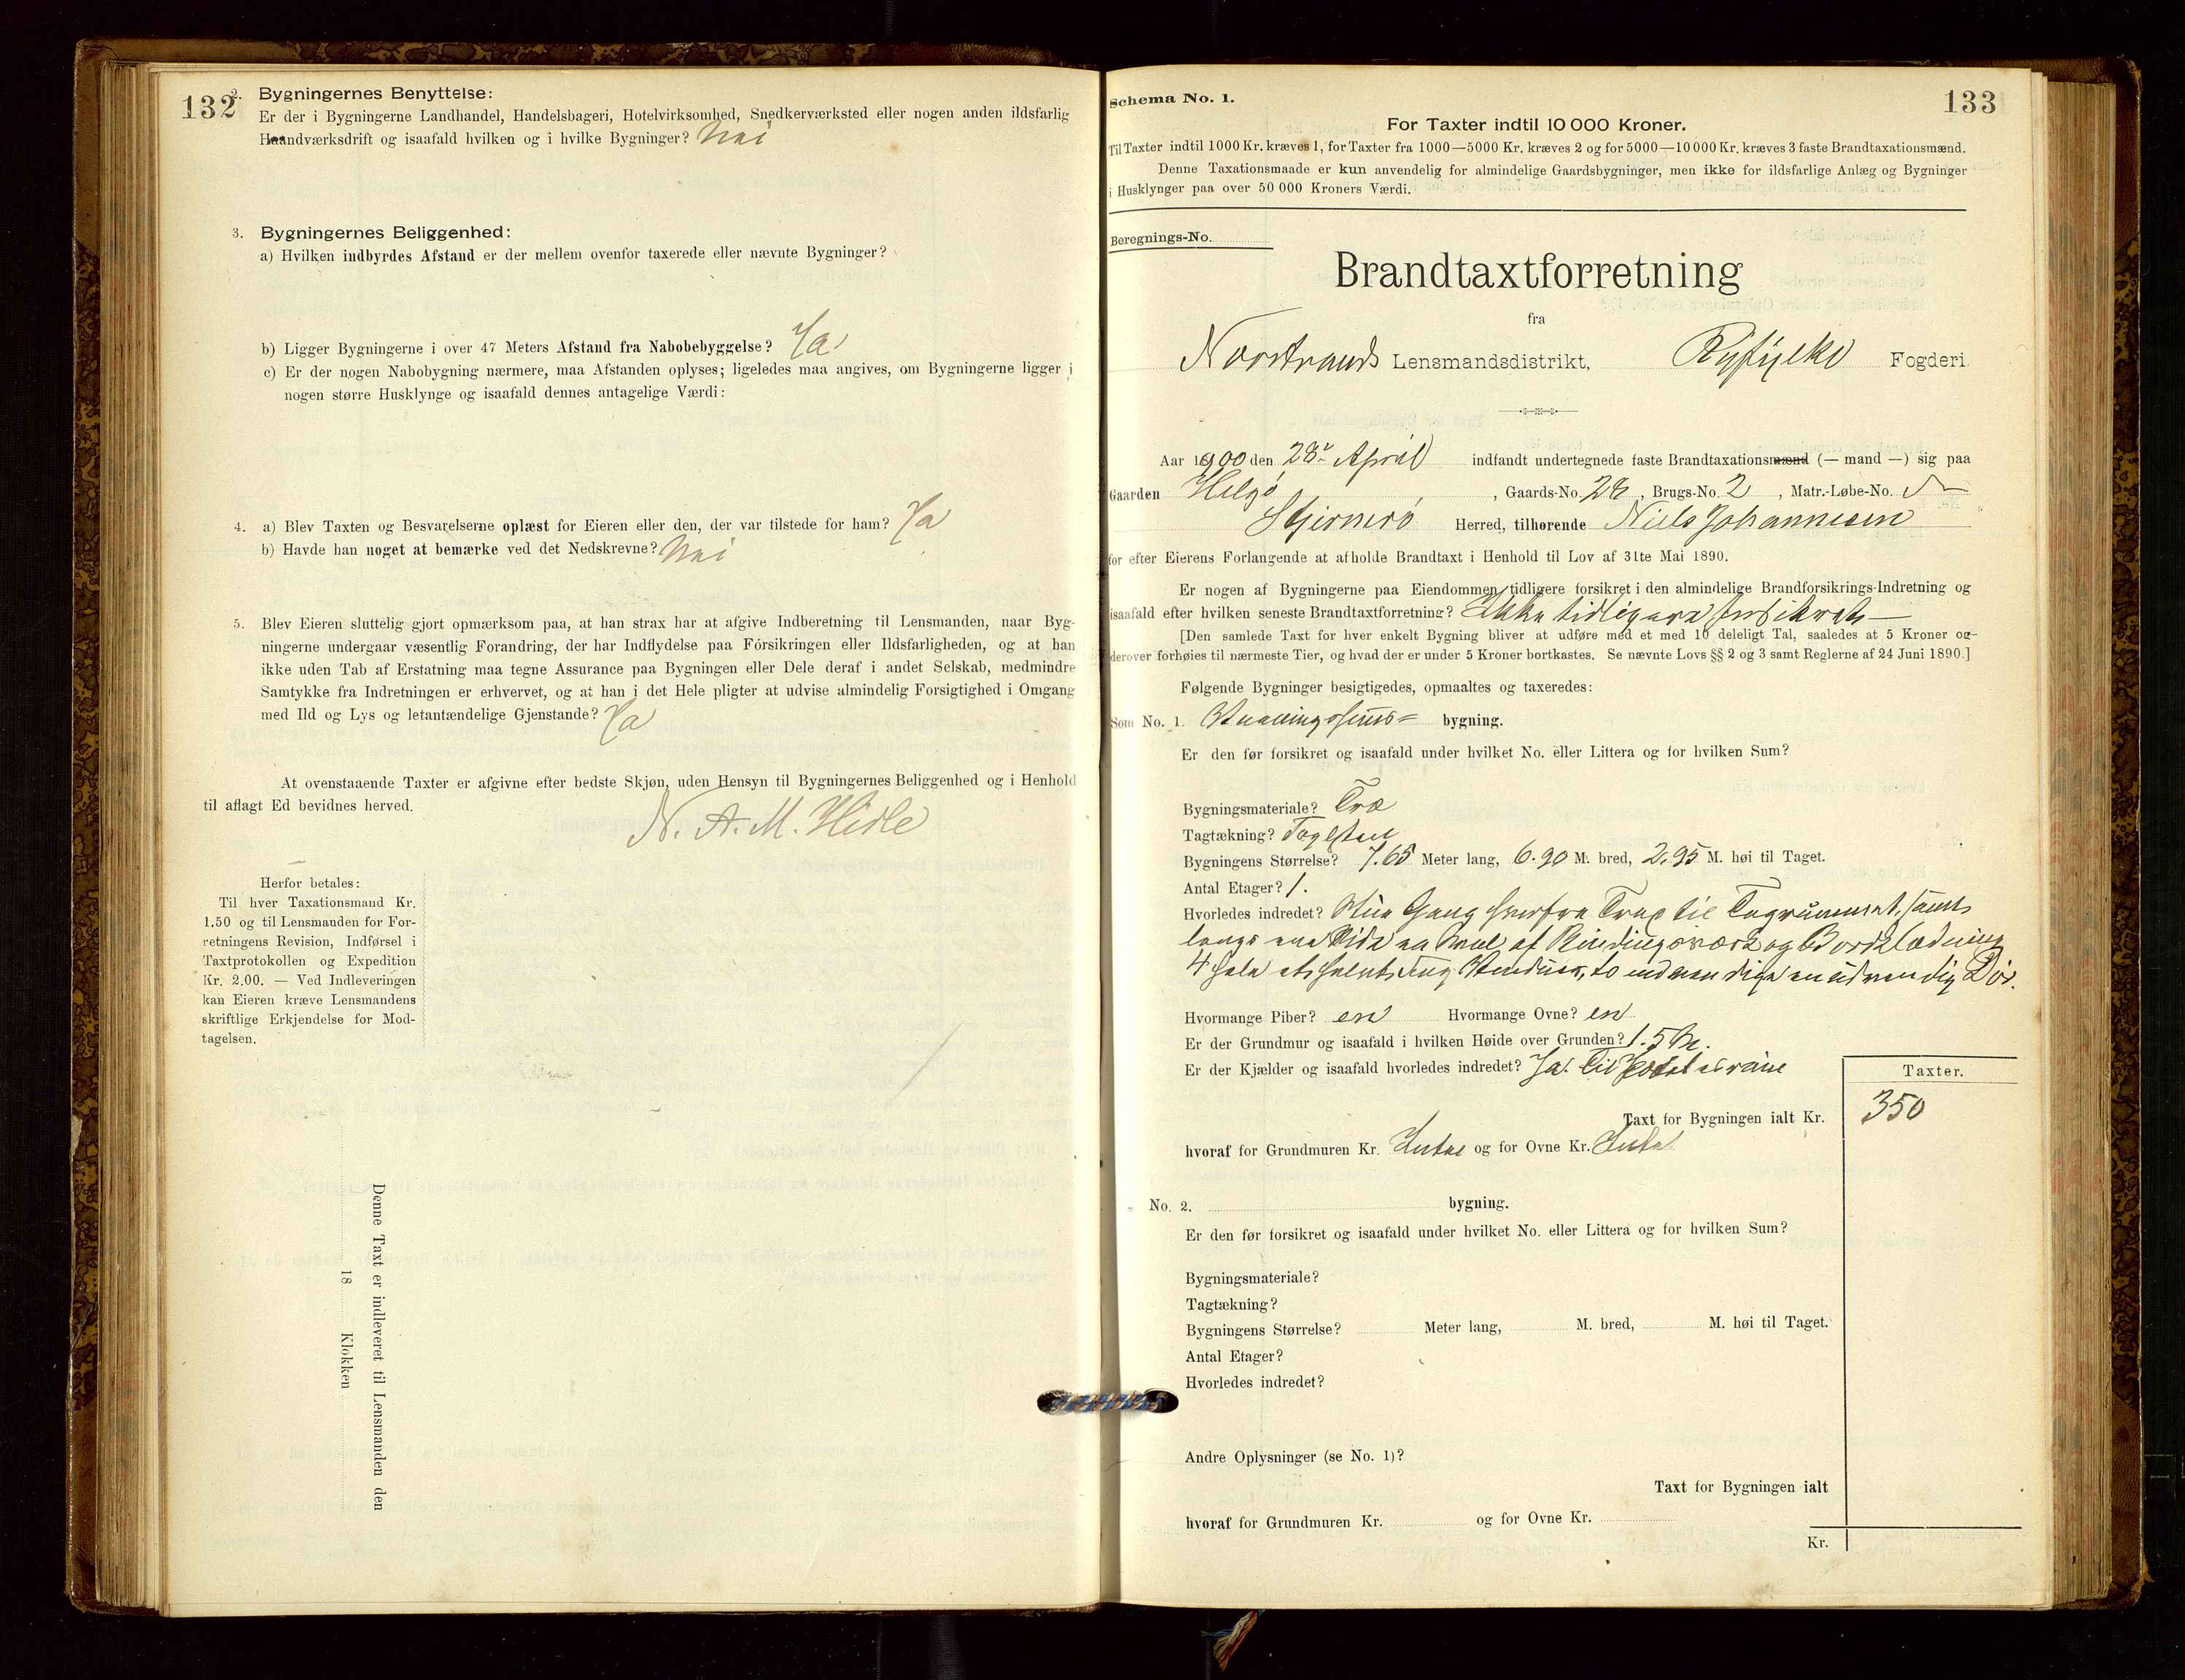 132
2. Bygningernes Benyttelse:
Er der i Bygningerne Landhandel, Handelsbageri, Hotelvirksomhed, Snedkerværksted eller nogen anden ildsfarlig
Haandværksdrift og isaafald hvilken og i hvilke Bygninger? Nei
3. Bygningernes Beliggenhed:
a) Hvilken indbyrdes Afstand er der mellem ovenfor taxerede eller nævnte Bygninger?
b) Ligger Bygningerne i over 47 Meters Afstand fra Nabobebyggelse? Ja
c) Er der nogen Nabobygning nærmere, maa Afstanden oplyses; ligeledes maa angives, om Bygningerne ligger i
nogen større Husklynge og isaafald dennes antagelige Værdi:
4. a) Blev Taxten og Besvarelserne oplæst for Eieren eller den, der var tilstede for ham? Ja
b) Havde han noget at bemærke ved det Nedskrevne? Nei
5. Blev Eieren sluttelig gjort opmærksom paa, at han strax har at afgive Indberetning til Lensmanden, naar Byg-
ningerne undergaar væsentlig Forandring, der har Indflydelse paa Forsikringen eller Ildsfarligheden, og at han
ikke uden Tab af Erstatning maa tegne Assurance paa Bygningen eller Dele deraf i andet Selskab, medmindre
Samtykke fra Indretningen er erhvervet, og at han i det Hele pligter at udvise almindelig Forsigtighed i Omgang
med Ild og Lys og letantændelige Gjenstande? Ja
At ovenstaaende Taxter er afgivne efter bedste Skjøn, uden Hensyn til Bygningernes Beliggenhed og i Henhold
til aflagt Ed bevidnes herved.
N. A. M. Hidle
Herfor betales:
Til hver Taxationsmand Kr.
1.50 og til Lensmanden for For-
retningens Revision, Indførsel i
Taxtprotokollen og Expedition
Kr. 2.00. — Ved Indleveringen
kan Eieren kræve Lensmandens
skriftlige Erkjendelse for Mod-
tagelsen.
Denne Taxt er indleveret til Lensmanden den
18 Klokken
133
Schema No. 1.
For Taxter indtil 10 000 Kroner.
Til Taxter indtil 1000 Kr. kræves 1, for Taxter fra 1000—5000 Kr. kræves 2 og for 5000—10 000 Kr. kræves 3 faste Brandtaxationsmænd.
Denne Taxationsmaade er kun anvendelig for almindelige Gaardsbygninger, men ikke for ildsfarlige Anlæg og Bygninger
i Husklynger paa over 50 000 Kroners Værdi.
Beregnings-No.
Brandtaxtforretning
fra
Norstrands Lensmandsdistrikt, Ryfylke Fogderi.
Aar 1900 den 28de April indfandt undertegnede faste Brandtaxationsmænd (— mand —) sig paa
Gaarden Helgø, Gaards-No. 28, Brugs-No. 2, Matr.-Løbe-No.
Stjernerø Herred, tilhørende Niels Johannesen
for efter Eierens Forlangende at afholde Brandtaxt i Henhold til Lov af 31te Mai 1890.
Er nogen af Bygningerne paa Eiendommen tidligere forsikret i den almindelige Brandforsikrings-Indretning og
isaafald efter hvilken seneste Brandtaxtforretning? Ikke tidligere forsikrets —
[Den samlede Taxt for hver enkelt Bygning bliver at udføre med et med 10 deleligt Tal, saaledes at 5 Kroner og
derover forhøies til nærmeste Tier, og hvad der er under 5 Kroner bortkastes. Se nævnte Lovs §§ 2 og 3 samt Reglerne af 24 Juni 1890.]
Følgende Bygninger besigtigedes, opmaaltes og taxeredes:
Som No. 1. Vaaningshuus= bygning.
Er den før forsikret og isaafald under hvilket No. eller Littera og for hvilken Sum?
Bygningsmateriale? Træ
Tagtækning? Taglsten
Bygningens Størrelse? 7.65 Meter lang, 6.90 M. bred, 2.95 M. høi til Taget.
Antal Etager? 1.
Hvorledes indredet? Gang Trap til Tagrummet, samt
langs ene Side af Bindingsværk og Bordklædning
4 hele et halvt fag Vinduer, to indvendige en udvendig Dør.
Hvormange Piber? en Hvormange Ovne? en
Er der Grundmur og isaafald i hvilken Høide over Grunden? 1.5 M.
Er der Kjælder og isaafald hvorledes indredet? Ja. Til
Taxter.
Taxt for Bygningen ialt Kr. 350
hvoraf for Grundmuren Kr. Intet og for Ovne Kr. Intet
No. 2. bygning.
Er den før forsikret og isaafald under hvilket No. eller Littera og for hvilken Sum?
Bygningsmateriale?
Tagtækning?
Bygningens Størrelse? Meter lang, M. bred, M. høi til Taget.
Antal Etager?
Hvorledes indredet?
Andre Oplysninger (se No. 1)?
Taxt for Bygningen ialt
hvoraf for Grundmuren Kr. og for Ovne Kr.
Kr.